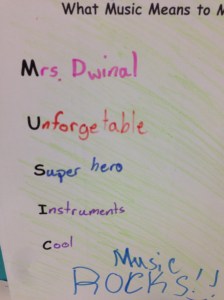 What Music Means to M
Mrs. Dwinal
Unforgetable
Super hero
Instruments
Cool
Music
ROCKS!!